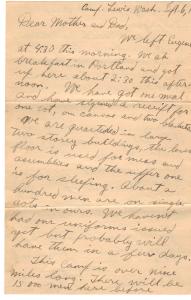 Camp Lewis, Wash. Sept. 6,
Dear Mother and Dad,
We left Eugene
at 4:30 this morning. We ate
breakfast in Portland and got
up here about 2:30 this after-
noon. We have got me mess
and have signed a receipt for
one cot, on canvas and two blankets
We are quartered in large
two storey buildings, the lower
floor is used for mess and
assemblies and the upper one
is for sleeping. About a
hundred men are on single
cots in ours. We haven't
had one uniforms issued
yet but probably will
have them in a few days.
This camp is over nine
miles long. There will be
15 000 men here before